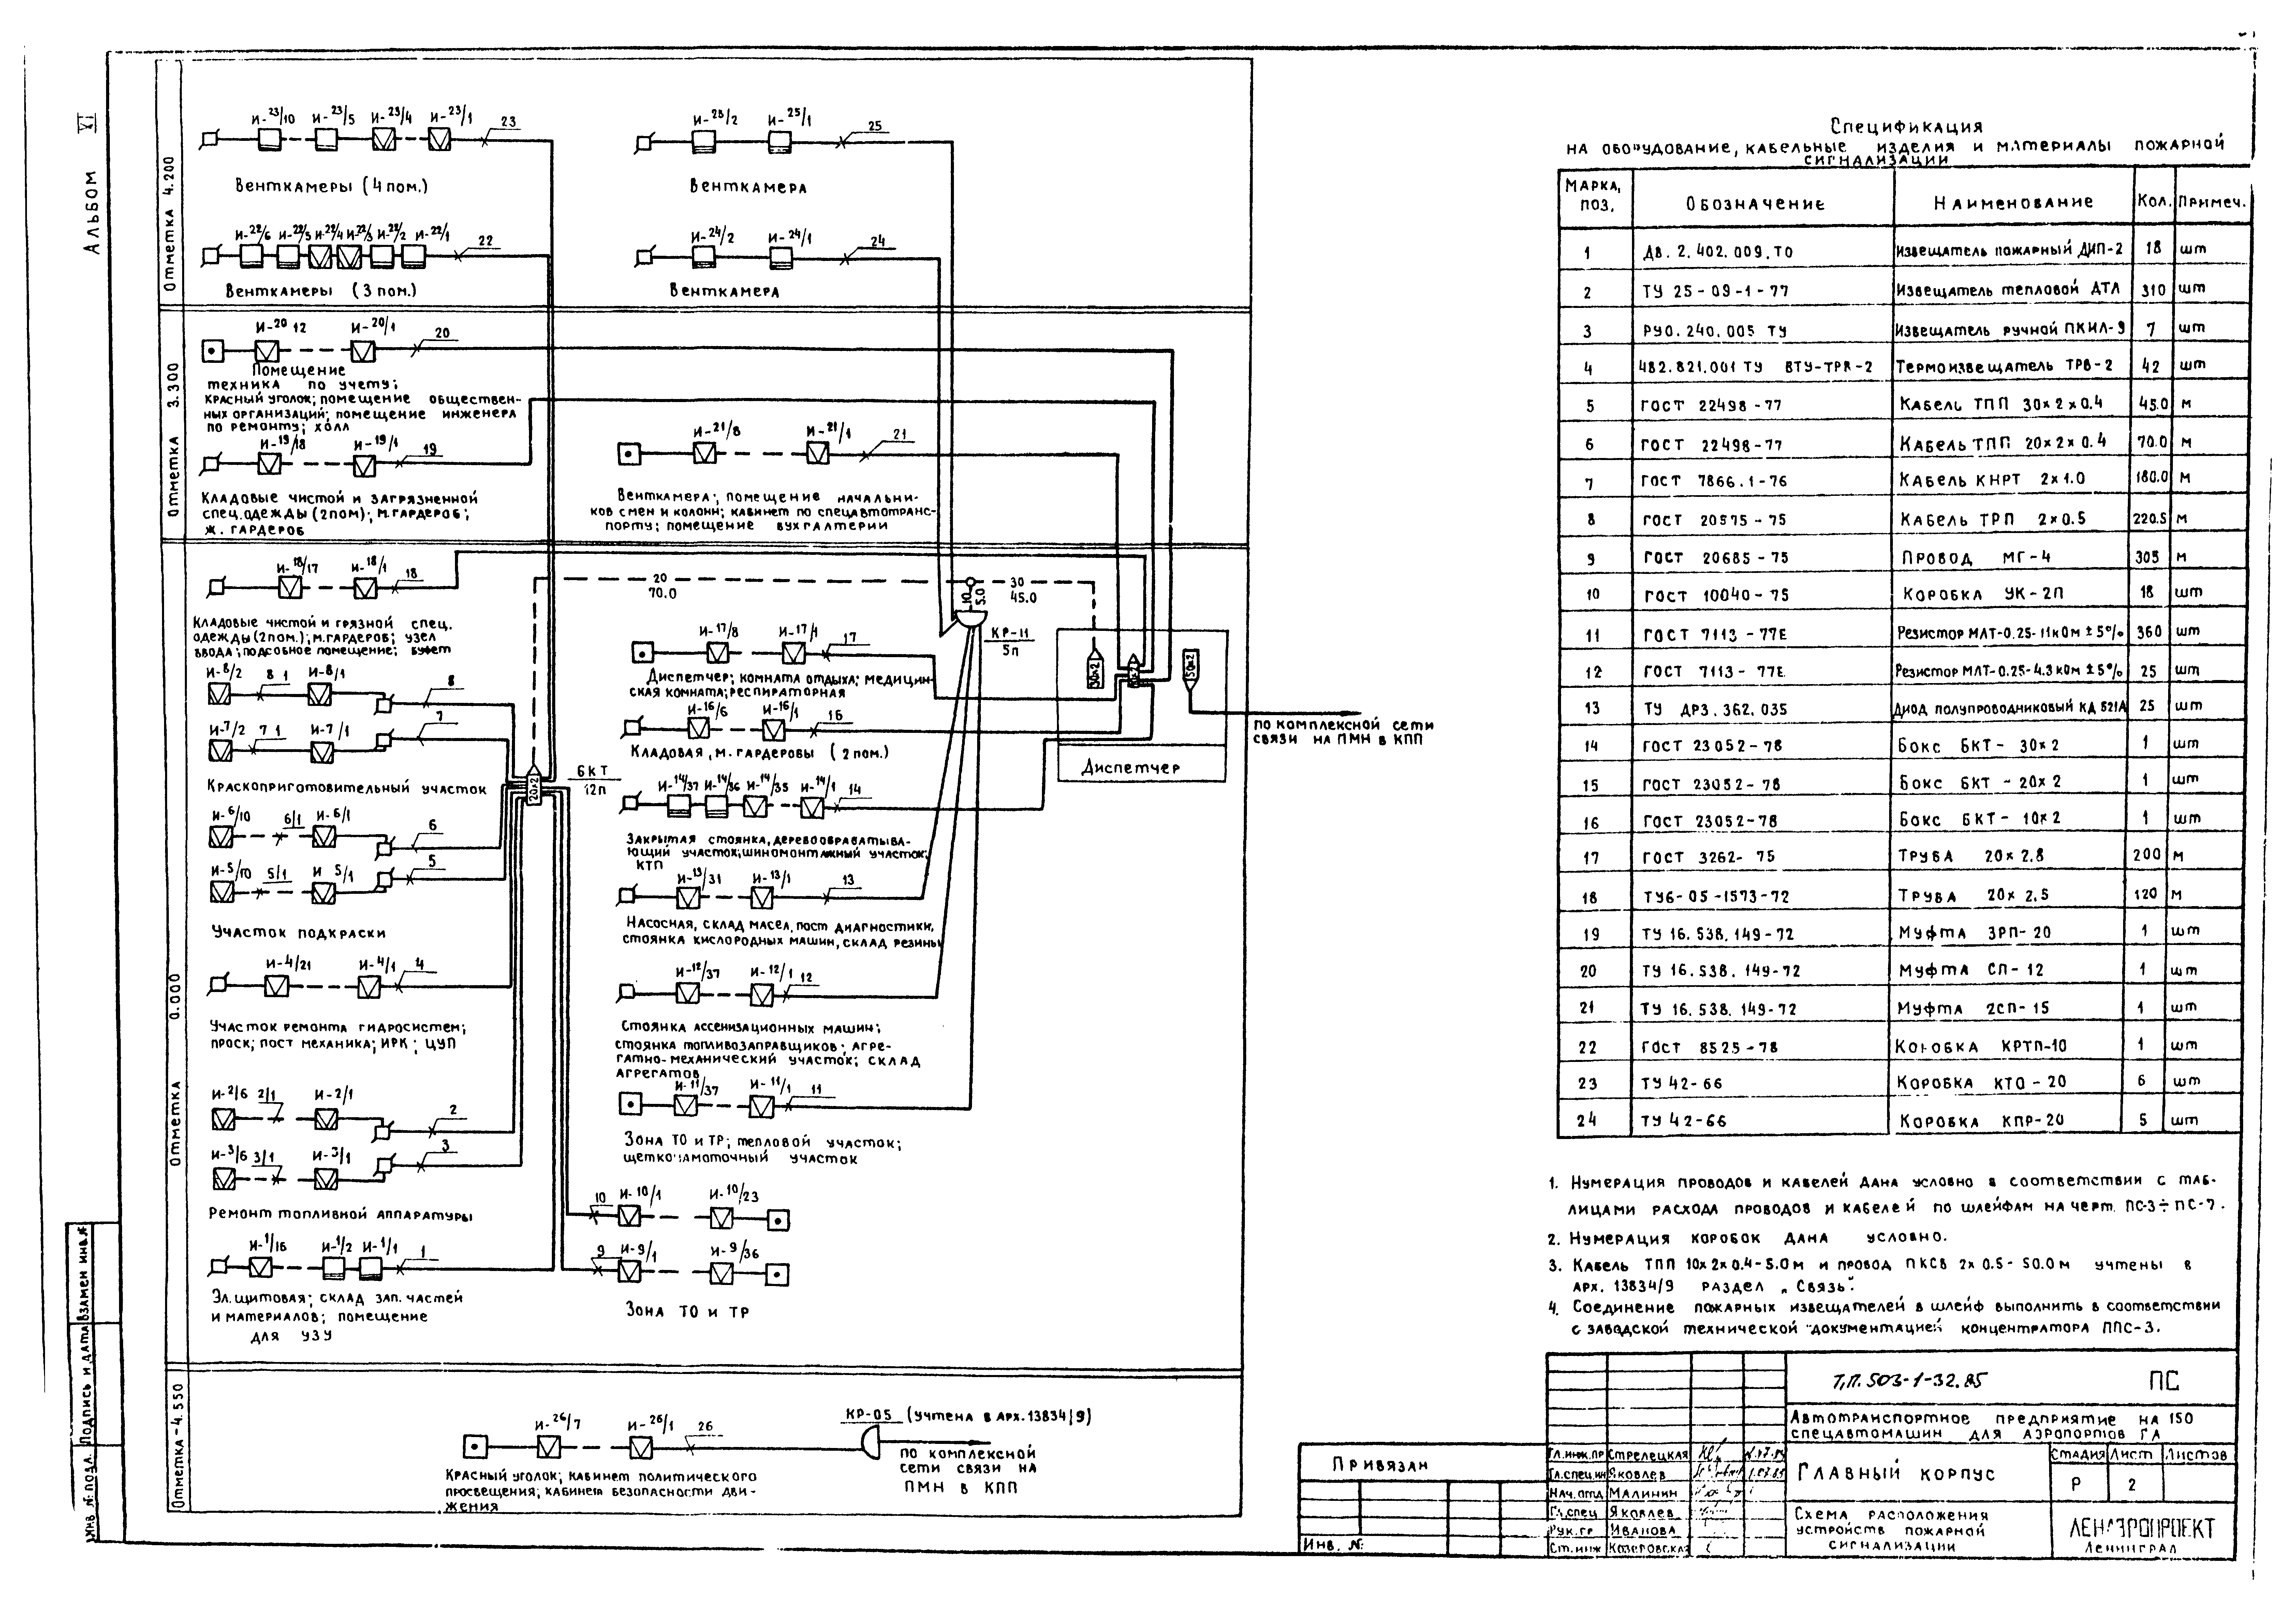 Альбом VI
Отметка 4.200
И-23/10 И-23/5 И-23/4 И-23/1 23
Венткамеры (4 пом.)
И-25/2 И-25/1 25
Венткамера
И-22/6 И-22/5 И-22/4 И-22/3 И-22/2 И-22/1 22
Венткамеры (3 пом.)
И-24/2 И-24/1 24
Венткамера
Отметка 3.300
И-20 12 И-20/1 20
Помещение
техника по учету;
красный уголок; помещение обществен-
ных организаций; помещение инженера
по ремонту; холл
И-19/18 И-19/1 19
Кладовые чистой и загрязненной
спец.одежды (2пом); м.гардероб;
ж. гардероб
И-21/8 И-21/1 21
Венткамера; помещение начальни-
ков смен и колонн; кабинет по спецавтотранс-
порту; помещение бухгалтерии
Отметка 0.000
И-18/17 И-18/1 18
Кладовые чистой и грязной спец.
одежды (2пом.); м.гардероб; узел
ввода; подсобное помещение; буфет
И-8/2 8 1 И-8/1 8
И-7/2 7 1 И-7/1 7
Краскоприготовительный участок
И-6/10 6/1 И-6/1 6
И-5/10 5/1 И 5/1 5
Участок подкраски
И-4/21 И-4/1 4
Участок ремонта гидросистем;
проск; пост механика; ИРК; ЦУП
И-2/6 2/1 И-2/1 2
И-3/6 3/1 И-3/1 3
Ремонт топливной аппаратуры
И-1/16 И-1/2 И-1/1 1
Эл.щитовая; склад зап. частей
и материалов; помещение
для УЗУ
20
70.0
30
45.0
10
5.0
КР-11
5п
БКТ
12п
20×2
30×2
50×2
Диспетчер
по комплексной сети
связи на ПМН в КПП
И-17/8 И-17/1 17
Диспетчер; комната отдыха; медицин-
ская комната; респираторная
И-16/6 И-16/1 16
Кладовая, м. гардеробы (2 пом.)
И-14/37 И-14/36 И-14/35 И-14/1 14
Закрытая стоянка, деревообрабатыва-
ющий участок; шиномонтажный участок;
КТП
И-13/31 И-13/1 13
Насосная, склад масел, пост диагностики,
стоянка кислородных машин, склад резины
И-12/37 И-12/1 12
Стоянка ассенизационных машин;
стоянка топливозаправщиков; агре-
гатно-механический участок; склад
агрегатов
И-11/37 И-11/1 11
Зона ТО и ТР; тепловой участок;
щетконамоточный участок
10 И-10/1 И-10/23
9 И-9/1 И-9/36
Зона ТО и ТР
Отметка -4.550
И-26/7 И-26/1 26
Красный уголок; кабинет политического
просвещения; кабинет безопасности дви-
жения
КР-05 (учтена в арх. 13834/9)
по комплексной
сети связи на
ПМН в КПП
Спецификация
на оборудование, кабельные изделия и материалы пожарной
сигнализации
Марка, поз. Обозначение Наименование Кол. Примеч.
1 Дв. 2. 402. 009. ТО Извещатель пожарный ДИП-2 18 шт
2 ТУ 25-09-1-77 Извещатель тепловой ДТЛ 310 шт
3 РУ0. 240. 005 ТУ Извещатель ручной ПКИЛ-9 7 шт
4 482.821.001 ТУ ВТУ-ТРВ-2 Термоизвещатель ТРВ-2 42 шт
5 ГОСТ 22498-77 Кабель ТПП 30×2×0.4 45.0 м
6 ГОСТ 22498-77 Кабель ТПП 20×2×0.4 70.0 м
7 ГОСТ 7866.1-76 Кабель КНРТ 2×1.0 180.0 м
8 ГОСТ 20575-75 Кабель ТРП 2×0.5 220.5 м
9 ГОСТ 20685-75 Провод МГ-4 305 м
10 ГОСТ 10040-75 Коробка УК-2П 18 шт
11 ГОСТ 7113-77Е Резистор МЛТ-0.25-11кОм ±5% 360 шт
12 ГОСТ 7113-77Е Резистор МЛТ-0.25-4.3 кОм ±5% 25 шт
13 ТУ ДРЗ. 362. 035 Диод полупроводниковый КД 521А 25 шт
14 ГОСТ 23052-78 Бокс БКТ-30×2 1 шт
15 ГОСТ 23052-78 Бокс БКТ-20×2 1 шт
16 ГОСТ 23052-78 Бокс БКТ-10×2 1 шт
17 ГОСТ 3262-75 Труба 20×2.8 200 м
18 ТУ6-05-1573-72 Труба 20×2.5 120 м
19 ТУ 16.538.149-72 Муфта 3РП-20 1 шт
20 ТУ 16.538.149-72 Муфта СП-12 1 шт
21 ТУ 16.538.149-72 Муфта 2СП-15 1 шт
22 ГОСТ 8525-78 Коробка КРТП-10 1 шт
23 ТУ 42-66 Коробка КТО-20 6 шт
24 ТУ 42-66 Коробка КПР-20 5 шт
1. Нумерация проводов и кабелей дана условно в соответствии с таб-
лицами расхода проводов и кабелей по шлейфам на черт. ПС-3÷ПС-7.
2. Нумерация коробок дана условно.
3. Кабель ТПП 10×2×0.4-5.0м и провод ПКСВ 2×0.5-50.0м учтены в
арх. 13834/9 раздел „Связь".
4. Соединение пожарных извещателей в шлейф выполнить в соответствии
с заводской технической документацией концентратора ППС-3.
Т.П. 503-1-32.85 ПС
Автотранспортное предприятие на 150
спецавтомашин для аэропортов ГА
Главный корпус
Стадия Лист Листов
Р 2
Схема расположения
устройств пожарной
сигнализации
ЛЕНАЭРОПРОЕКТ
Ленинград
Гл.инж.пр Стрелецкая
Гл.спец.ин Яковлев
Нач.отд Малинин
Гл.спец Яковлев
Рук.гр Иванова
Ст.инж
Привязан
Инв. №
Инв. № подл. Подпись и дата Взамен инв.№